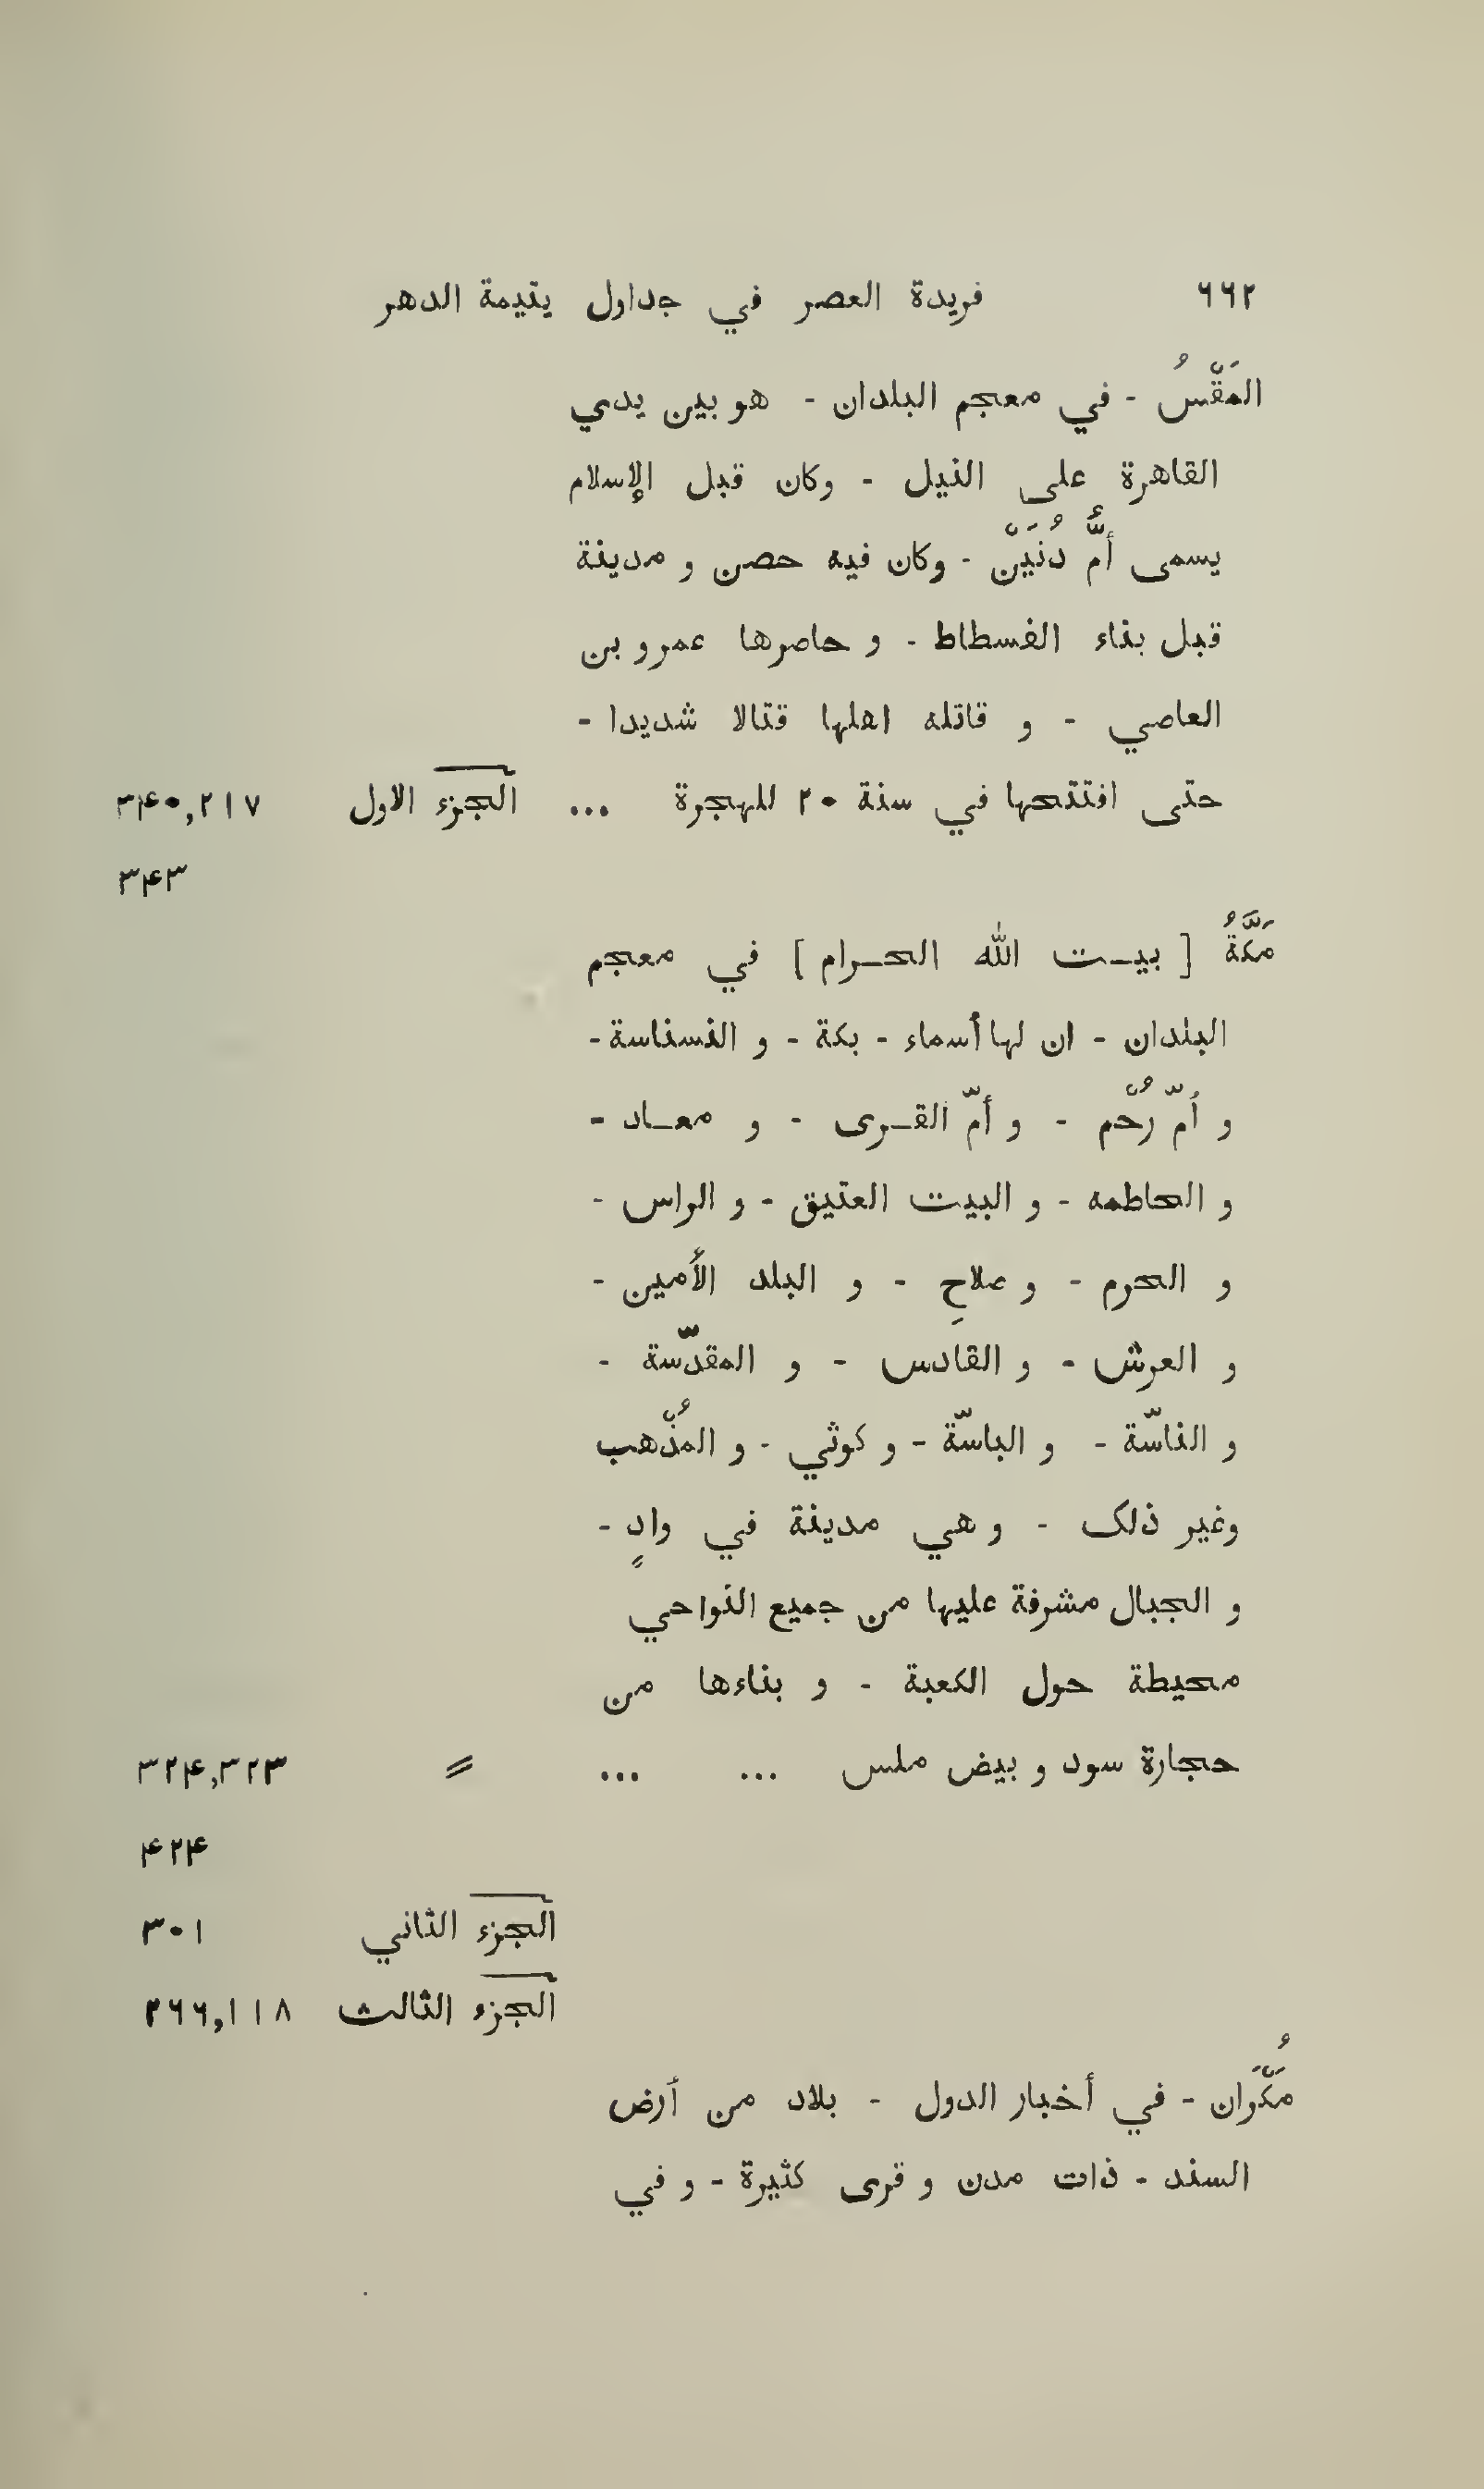 ٦٦٢ فريدة العصر في جداول يتيمة الدهر
المَقْسُ - في معجم البلدان - هو بين يدي
القاهرة على النيل - وكان قبل الإسلام
يسمى أُمَّ دُنَيْن - وكان فيه حصن و مدينة
قبل بناء الفسطاط - و حاصرها عمرو بن
العاصي - و قاتله اهلها قتالا شديدا -
حتى افتتحها في سنة ٢٠ للهجرة ... الجزء الاول ٢١٧,٣۴٠
٣۴٣
مَكَّةُ [ بيـت الله الحـرام ] في معجم
البلدان - ان لها أسماء - بكة - و النسناسة -
و أمّ رُحْم - و أمّ القـرى - و معـاد -
و الحاطمه - و البيت العتيق - و الراس -
و الحرم - و صلاحِ - و البلد الأمين -
و العرش - و القادس - و المقدّسة -
و الناسّة - و الباسّة - و كوثي - و المُذْهب
وغير ذلک - و هي مدينة في وادٍ -
و الجبال مشرفة عليها من جميع النواحي
محيطة حول الكعبة - و بناءها من
حجارة سود و بيض ملس ... ... 〃 ٣٢٣,٣٢۴
۴٢۴
الجزء الثاني ٣٠١
الجزء الثالث ١١٨,٢٦٦
مُكْرَان - في أخبار الدول - بلاد من أرض
السند - ذات مدن و قرى كثيرة - و في